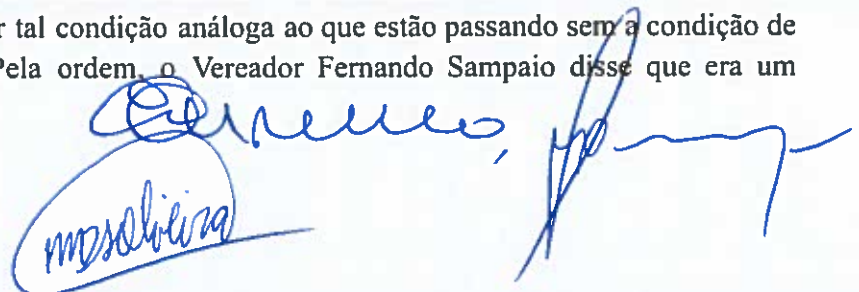 r tal condição análoga ao que estão passando sem a condição de
Pela ordem, o Vereador Fernando Sampaio disse que era um
mdsoliveira